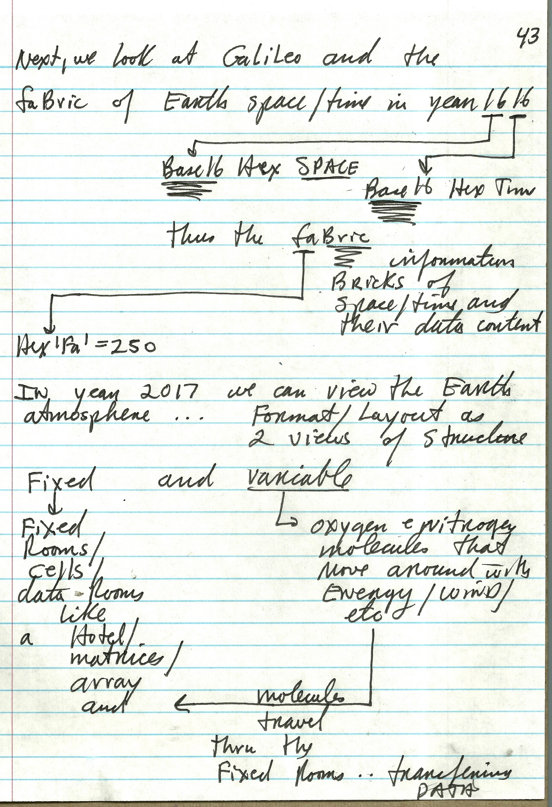 43
Next, we look at Galileo and the
faBric of Earth space/time in year 1616
Base16 Hex SPACE
Base16 Hex Time
thus the faBric
information
Bricks of
space/time and
their data content
Hex 'Fa' = 250
In year 2017 we can view the Earth
atmosphere ... Format/Layout as
2 views of structure
Fixed and variable
Fixed
Rooms/
cells/
data-Rooms
like
a Hotel/
matrices/
array
and
oxygen & nitrogen
molecules that
move around with
Energy/WIND/
etc
molecules
travel
thru the
Fixed Rooms .. transferring
DATA